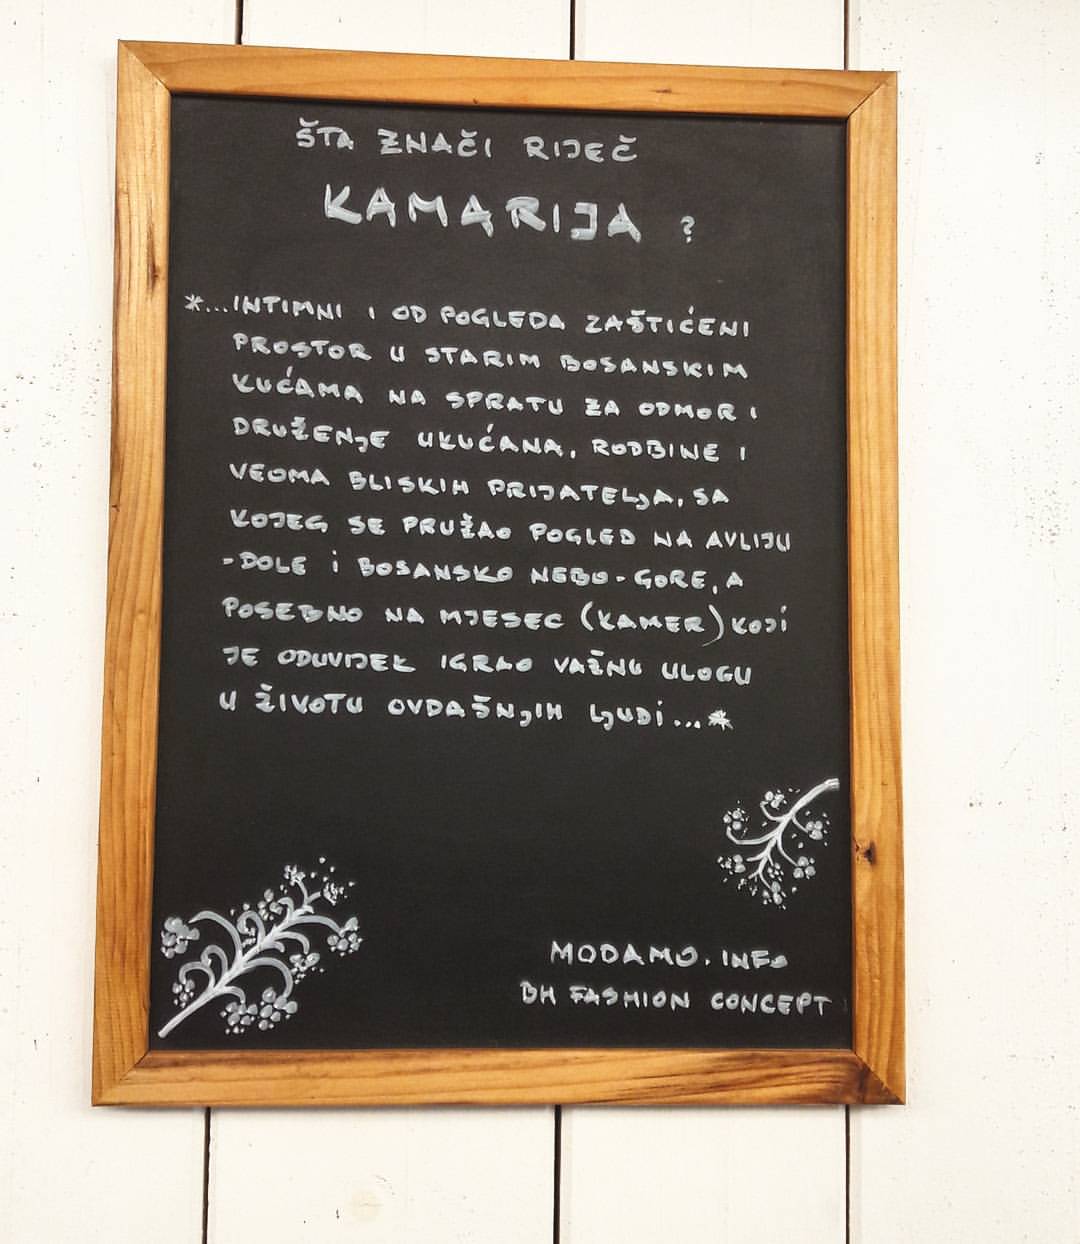 ŠTA ZNAČI RIJEČ
KAMARIJA ?
*...INTIMNI I OD POGLEDA ZAŠTIĆENI
PROSTOR U STARIM BOSANSKIM
KUĆAMA NA SPRATU ZA ODMOR I
DRUŽENJE UKUĆANA, RODBINE I
VEOMA BLISKIH PRIJATELJA, SA
KOJEG SE PRUŽAO POGLED NA AVLIJU
-DOLE I BOSANSKO NEBO-GORE, A
POSEBNO NA MJESEC (KAMER) KOJI
JE ODUVIJEK IGRAO VAŽNU ULOGU
U ŽIVOTU OVDAŠNJIH LJUDI...*
MODAMO.INFO
BH FASHION CONCEPT